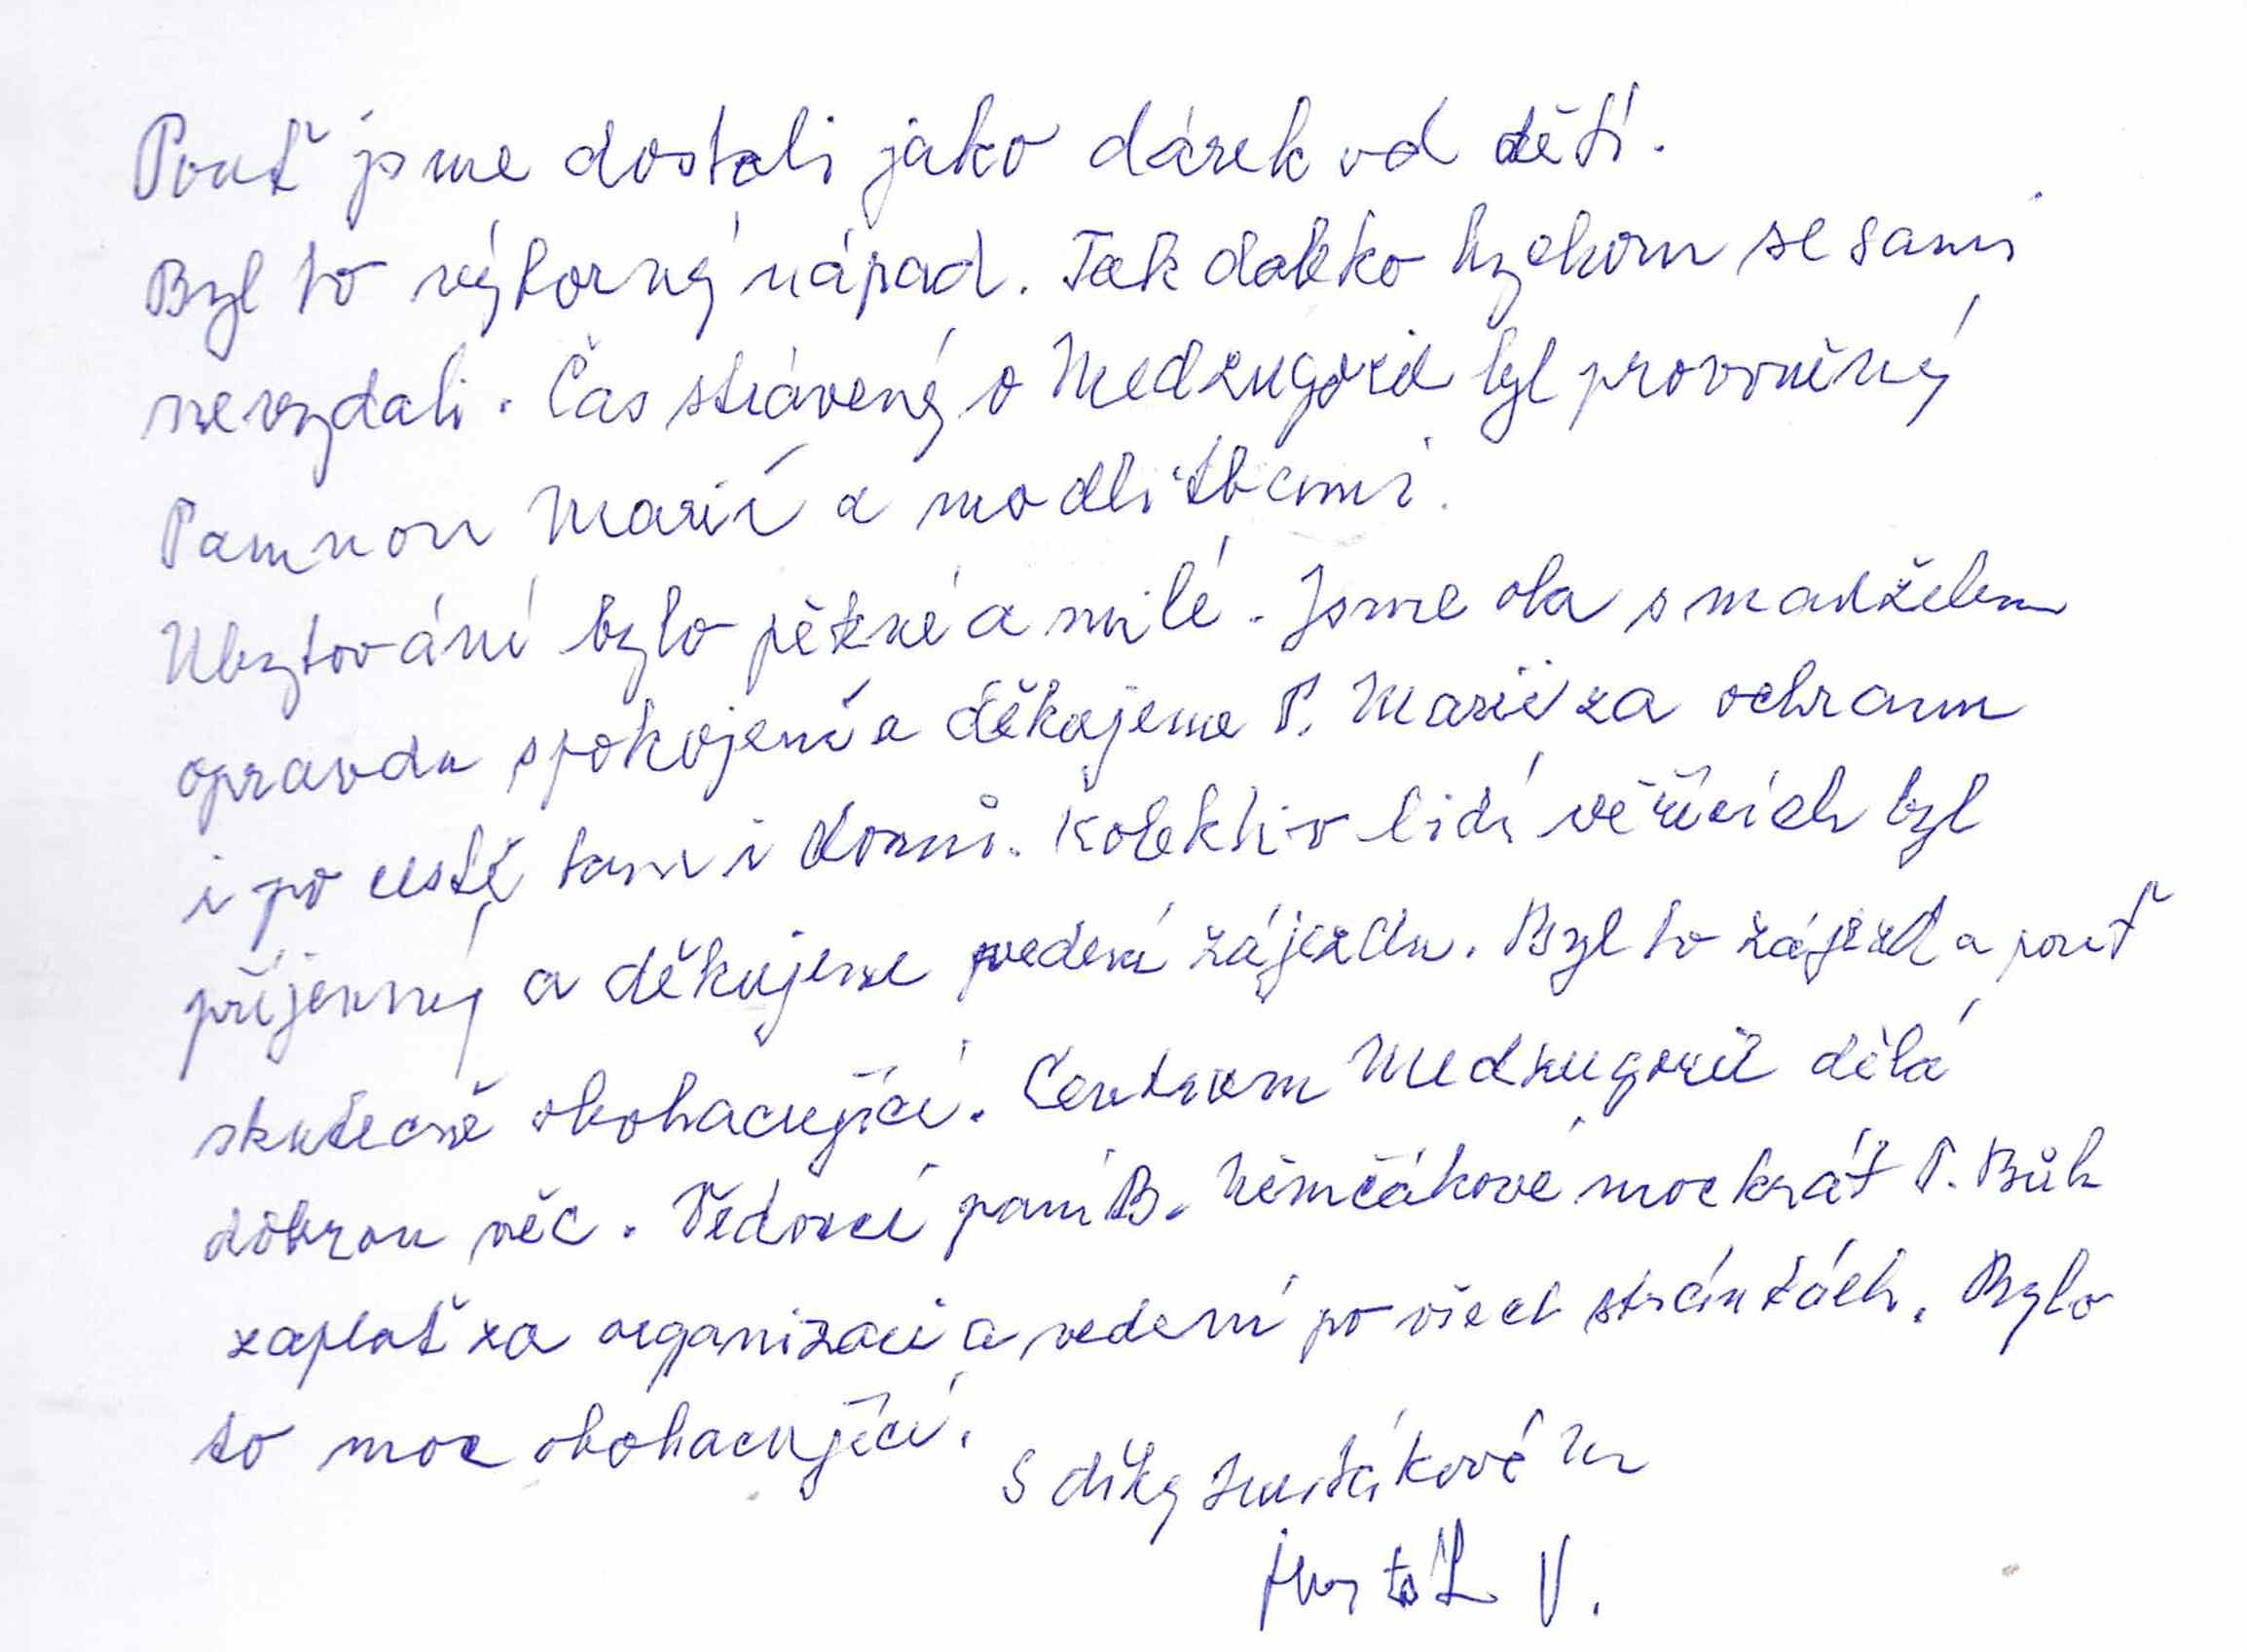 Pouť jsme dostali jako dárek od dětí.
Byl to výborný nápad. Tak daleko bychom se sami
nevydali. Čas strávený v Medžugorii byl provoněný
Pannou Marií a modlitbami.
Ubytování bylo pěkné a milé. Jsme oba s manželem
opravdu spokojeni a děkujeme P. Marii za ochranu
i po cestě tam i domů. Kolektiv lidí věřících byl
příjemný a děkujeme vedení zájezdu. Byl to zájezd a pouť
skutečně obohacující. Centrum Medzugorie dělá
dobrou věc. Vedoucí paní B. Němčákové mockrát P. Bůh
zaplať za organizaci a vedení po všech stránkách. Bylo
to moc obohacující.
S díky
V.